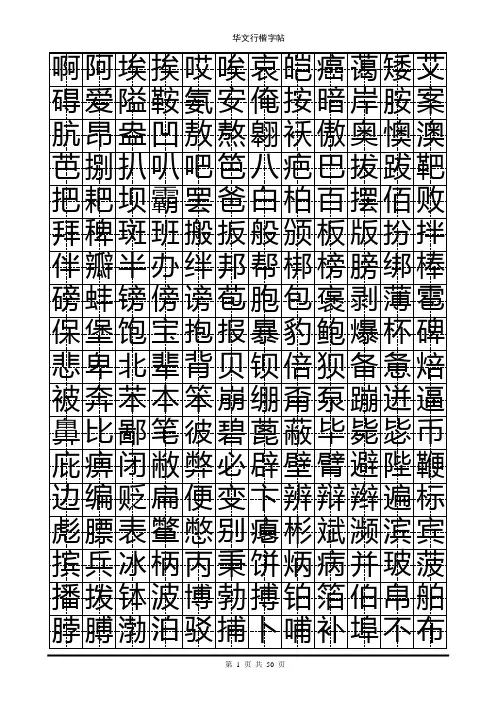 华文行楷字帖
啊阿埃挨哎唉哀皑癌蔼矮艾
碍爱隘鞍氨安俺按暗岸胺案
肮昂盎凹敖熬翱袄傲奥懊澳
芭捌扒叭吧笆八疤巴拔跋靶
把耙坝霸罢爸白柏百摆佰败
拜稗斑班搬扳般颁板版扮拌
伴瓣半办绊邦帮梆榜膀绑棒
磅蚌镑傍谤苞胞包褒剥薄雹
保堡饱宝抱报暴豹鲍爆杯碑
悲卑北辈背贝钡倍狈备惫焙
被奔苯本笨崩绷甭泵蹦迸逼
鼻比鄙笔彼碧蓖蔽毕毙毖币
庇痹闭敝弊必辟壁臂避陛鞭
边编贬扁便变卞辨辩辫遍标
彪膘表鳖憋别瘪彬斌濒滨宾
摈兵冰柄丙秉饼炳病并玻菠
播拨钵波博勃搏铂箔伯帛舶
脖膊渤泊驳捕卜哺补埠不布
第 1 页 共 50 页